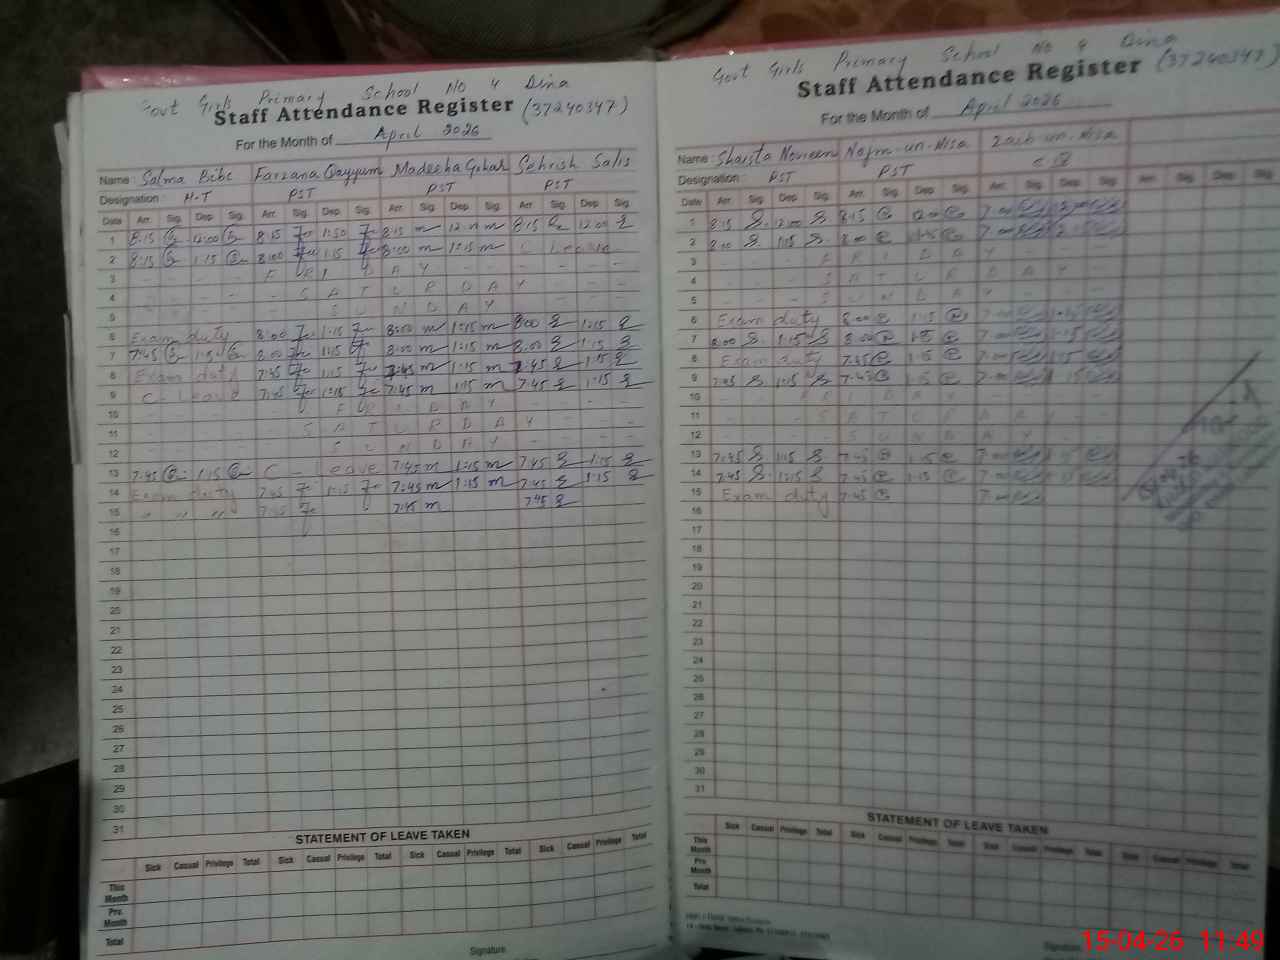 Govt Girls Primary School No 4 Dina
Staff Attendance Register (37240347)
For the Month of April 2026
Name: Salma Bibi Farzana Qayyum Madeeha Gohar Sehrish Salis
Designation: H-T PST PST PST
Date Arr. Sig. Dep. Sig. Arr. Sig. Dep. Sig. Arr. Sig. Dep. Sig. Arr. Sig. Dep. Sig.
1 8:15 12:00 8:15 11:50 8:15 m 12:00 m 8:15 12:00
2 8:15 1:15 8:00 1:15 8:00 m 1:15 m C Leave
3 - - - - F R I D A Y - - - -
4 - - - - S A T U R D A Y - - -
5 S U N D A Y - - -
6 Exam duty 8:00 1:15 8:00 m 1:15 m 8:00 1:15
7 7:45 1:15 8:00 1:15 8:00 m 1:15 m 8:00 1:15
8 Exam duty 7:45 1:15 7:45 m 1:15 m 7:45 1:15
9 C- Leave 7:45 1:15 7:45 m 1:15 m 7:45 1:15
10 - - - F R I D A Y - - - -
11 - - - - S A T U R D A Y - - -
12 - - - - S U N D A Y - - - -
13 7:45 1:15 C - Leave 7:45 m 1:15 m 7:45 1:15
14 Exam duty 7:45 1:15 7:45 m 1:15 m 7:45 1:15
15 " " " 7:45 7:45 m 7:45
16
17
18
19
20
21
22
23
24
25
26
27
28
29
30
31
STATEMENT OF LEAVE TAKEN
Sick Casual Privilege Total Sick Casual Privilege Total Sick Casual Privilege Total Sick Casual Privilege Total
This Month
Prv. Month
Total
Signature
Govt Girls Primary School No 4 Dina
Staff Attendance Register (37240347)
For the Month of April 2026
Name: Shaista Noreen Najm-un-Nisa Zaib-un-Nisa
Designation: PST PST
Date Arr. Sig. Dep. Sig. Arr. Sig. Dep. Sig. Arr. Sig. Dep. Sig. Arr. Sig. Dep. Sig.
1 8:15 12:00 8:15 12:00 7:00
2 8:00 1:15 8:00 1:15 7:00
3 - - - F R I D A Y - - -
4 - - - S A T U R D A Y - -
5 - - - S U N D A Y - - -
6 Exam duty 8:00 1:15 7:00
7 8:00 1:15 8:00 1:15 7:00 1:15
8 Exam duty 7:45 1:15 7:00 1:15
9 7:45 1:15 7:45 1:15 7:00 1:15
10 - - - F R I D A Y - - -
11 - - - S A T U R D A Y - -
12 - - - S U N D A Y - - -
13 7:45 1:15 7:45 1:15 7:00
14 7:45 1:15 7:45 1:15 7:00
15 Exam duty 7:45 7:00
16
17
18
19
20
21
22
23
24
25
26
27
28
29
30
31
STATEMENT OF LEAVE TAKEN
Sick Casual Privilege Total Sick Casual Privilege Total Sick Casual Privilege Total Sick Casual Privilege Total
This Month
Prv. Month
Total
Signature
15-04-26 11:49